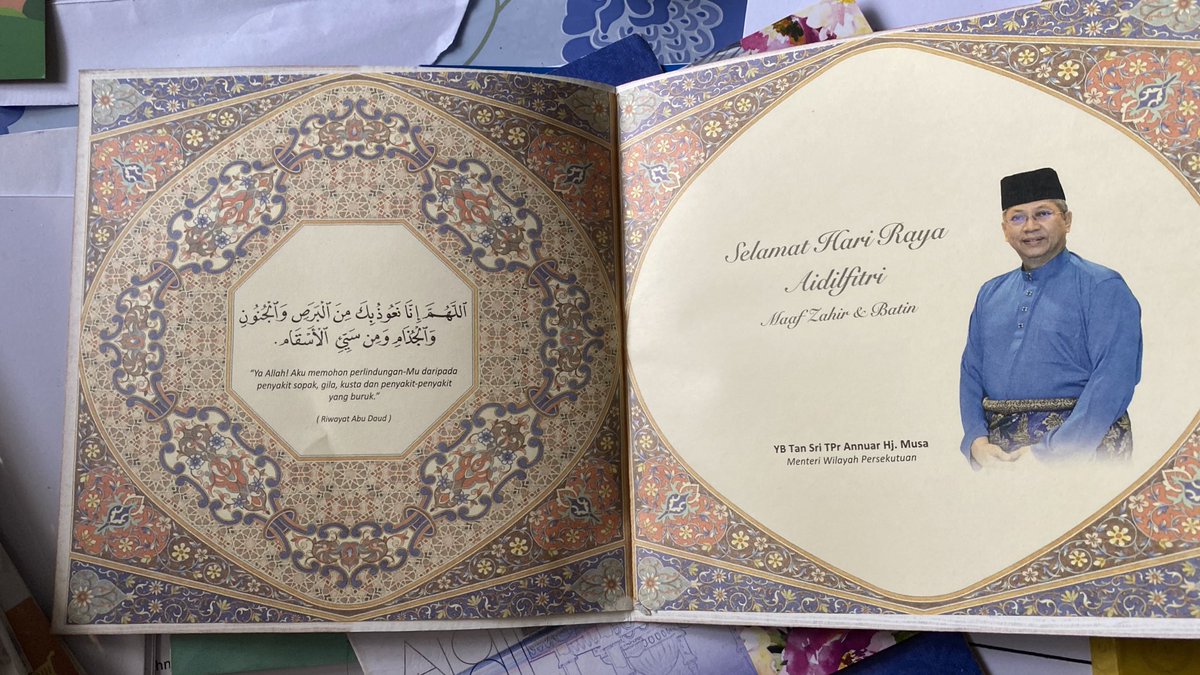 اَللّٰهُمَّ إِنَّا نَعُوْذُ بِكَ مِنَ الْبَرَصِ وَالْجُنُوْنِ
وَالْجُذَامِ وَمِنْ سَيِّئِ الْأَسْقَامِ.
“Ya Allah! Aku memohon perlindungan-Mu daripada
penyakit sopak, gila, kusta dan penyakit-penyakit
yang buruk.”
( Riwayat Abu Daud )
Selamat Hari Raya
Aidilfitri
Maaf Zahir & Batin
YB Tan Sri TPr Annuar Hj. Musa
Menteri Wilayah Persekutuan